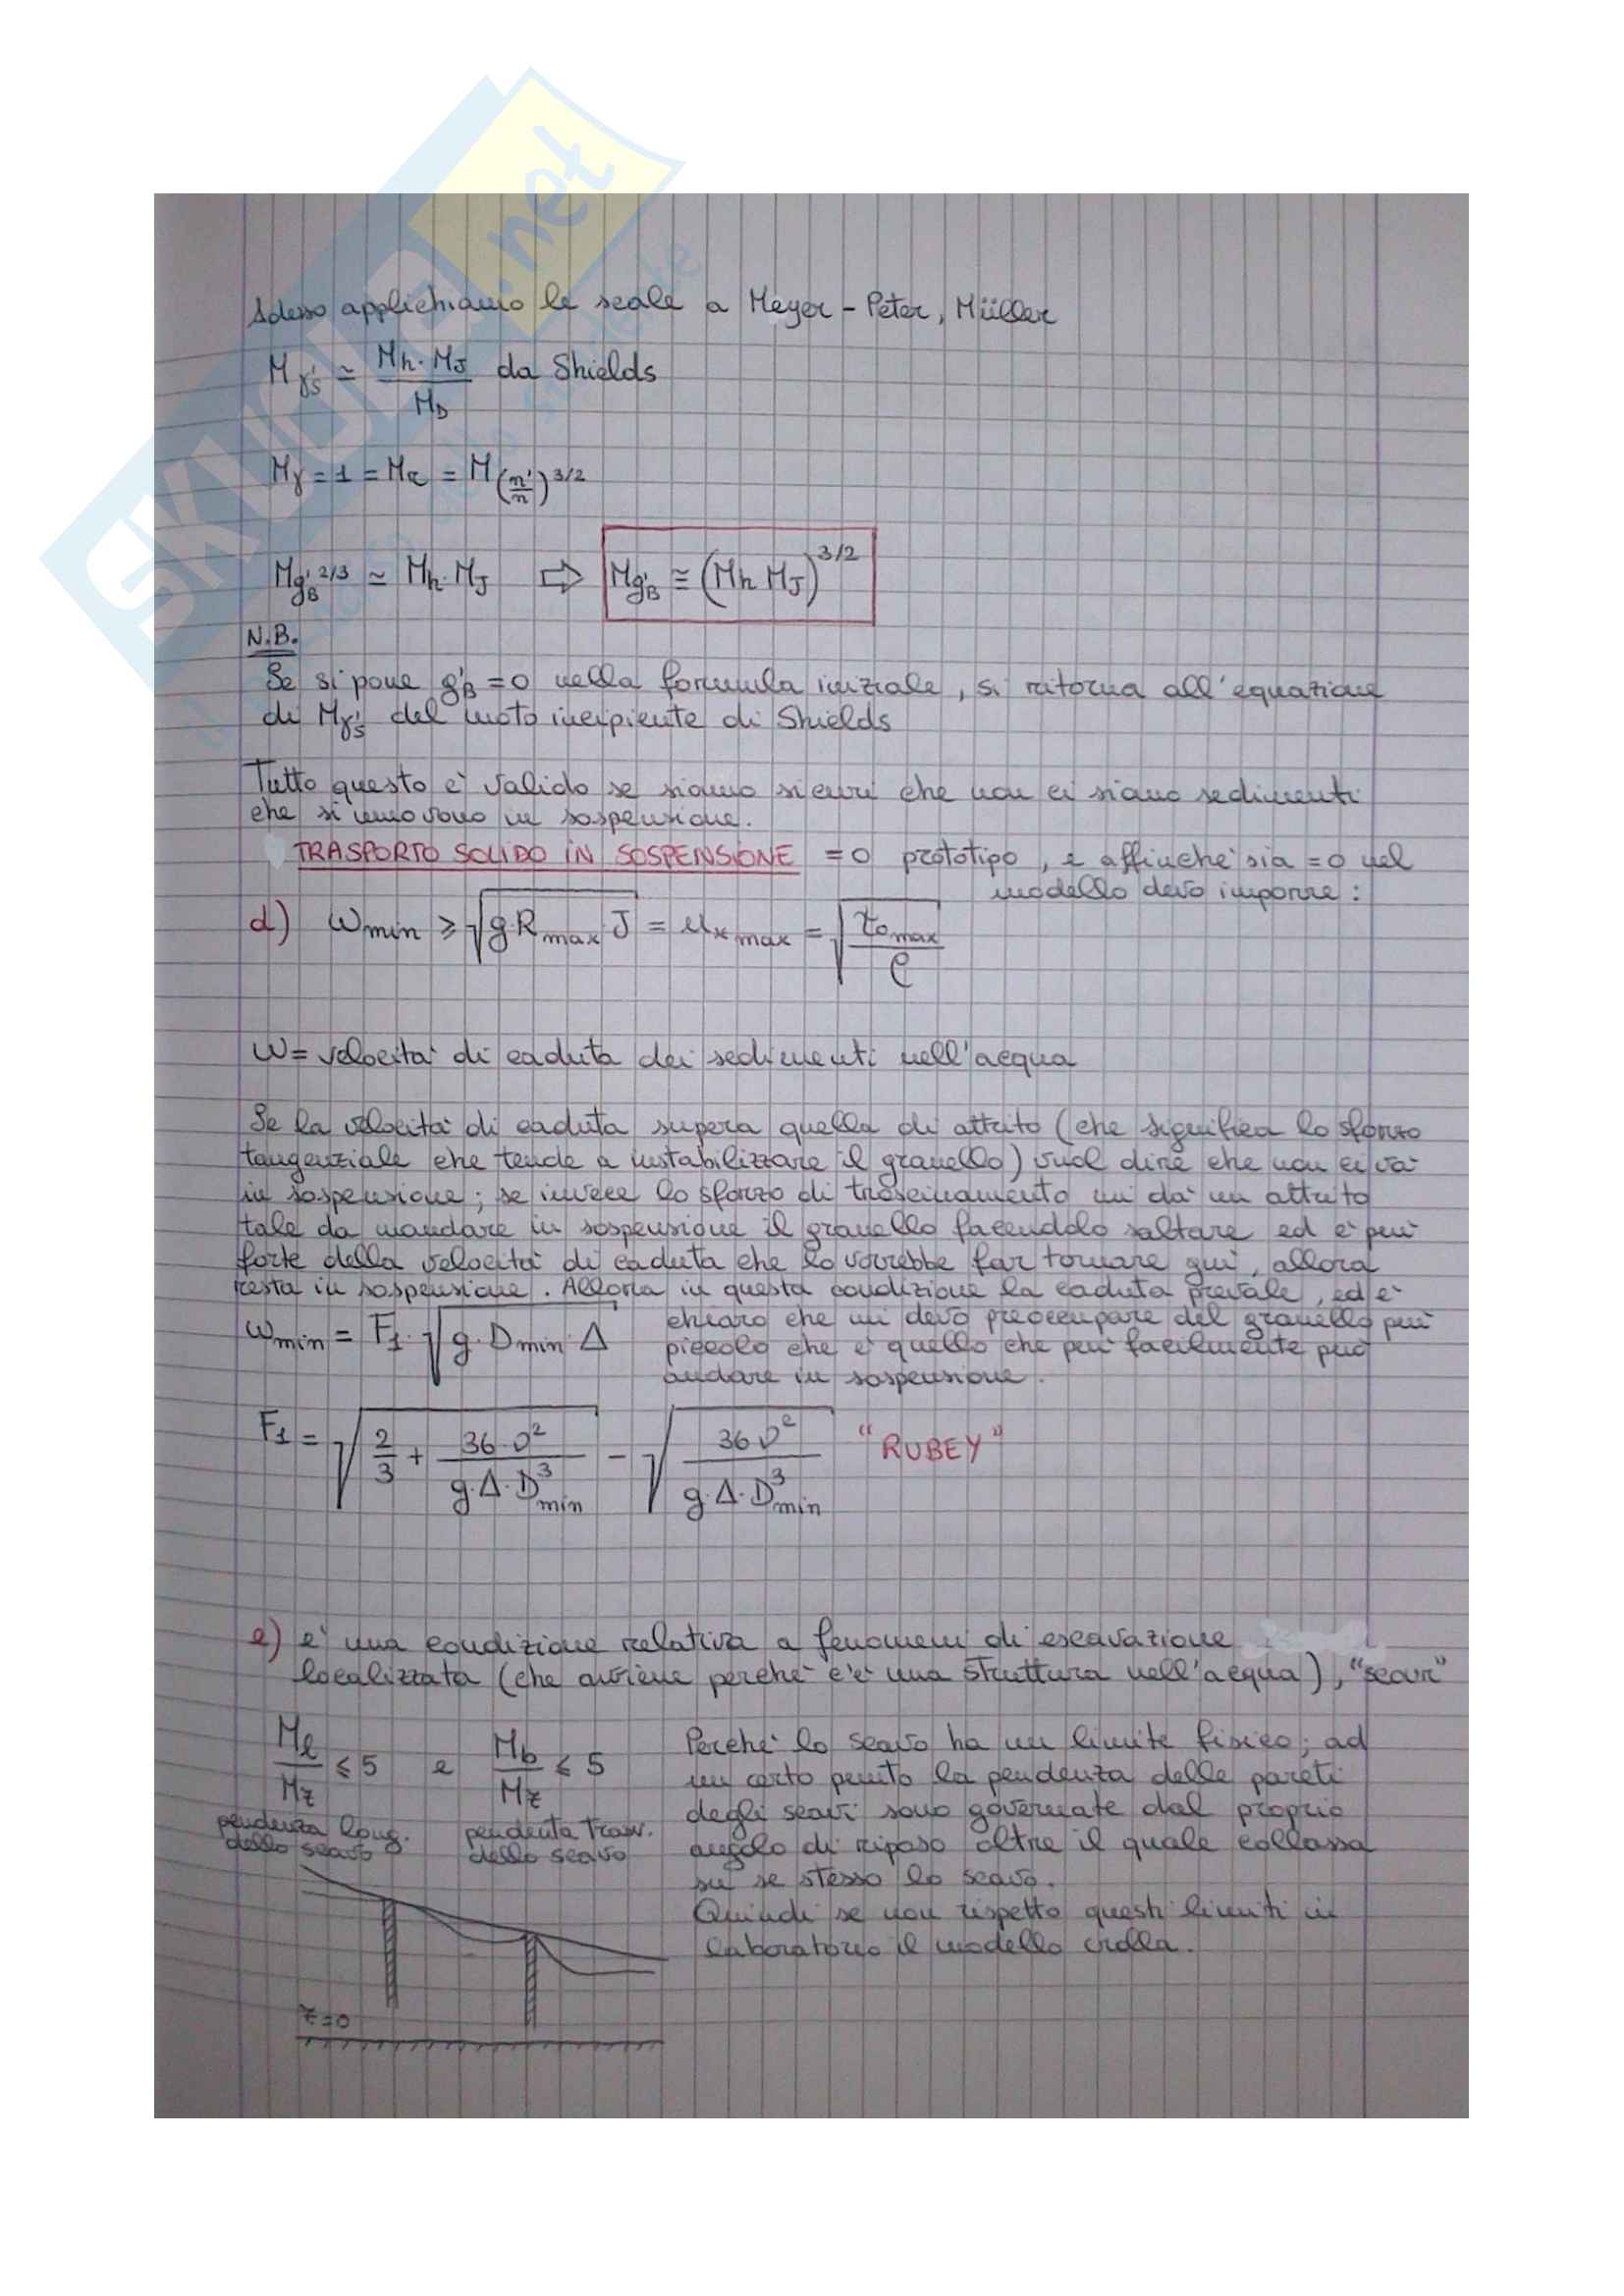 SKUOLA.net
Adesso applichiamo le scale a Meyer-Peter, Müller
Mγ's ≃ Mh·MJ / MD da Shields
Mγ = 1 = Mτ = M(n'/n)^3/2
Mg'B^2/3 ≃ Mh·MJ ⇨ Mg'B ≅ (Mh MJ)^3/2
N.B.
Se si pone g'B = 0 nella formula iniziale, si ritorna all'equazione
di Mγ's del moto incipiente di Shields
Tutto questo è valido se siamo sicuri che non ci siano sedimenti
che si muovono in sospensione.
TRASPORTO SOLIDO IN SOSPENSIONE = 0 prototipo, e affinché sia = 0 nel
modello devo imporre:
d) ωmin ⩾ √(g·Rmax·J) = u*max = √(τ0max/ρ)
ω = velocità di caduta dei sedimenti nell'acqua
Se la velocità di caduta supera quella di attrito (che significa lo sforzo
tangenziale che tende a instabilizzare il granello) vuol dire che non ci va
in sospensione; se invece lo sforzo di trascinamento mi dà un attrito
tale da mandare in sospensione il granello facendolo saltare ed è più
forte della velocità di caduta che lo vorrebbe far tornare giù, allora
resta in sospensione. Allora in questa condizione la caduta prevale, ed è
chiaro che mi devo preoccupare del granello più
piccolo che è quello che più facilmente può
andare in sospensione.
ωmin = F1·√(g·Dmin·Δ)
F1 = √(2/3 + 36·υ²/(g·Δ·D³min)) - √(36υ²/(g·Δ·D³min)) "RUBEY"
e) è una condizione relativa a fenomeni di escavazione
localizzata (che avviene perché c'è una struttura nell'acqua), "scavi"
Mℓ/Mz ⩽ 5 e Mb/Mz ⩽ 5
pendenza long. dello scavo
pendenza trasv. dello scavo
Perché lo scavo ha un limite fisico; ad
un certo punto la pendenza delle pareti
degli scavi sono governate dal proprio
angolo di riposo oltre il quale collassa
su se stesso lo scavo.
Quindi se non rispetto questi limiti in
laboratorio il modello crolla.
z=0